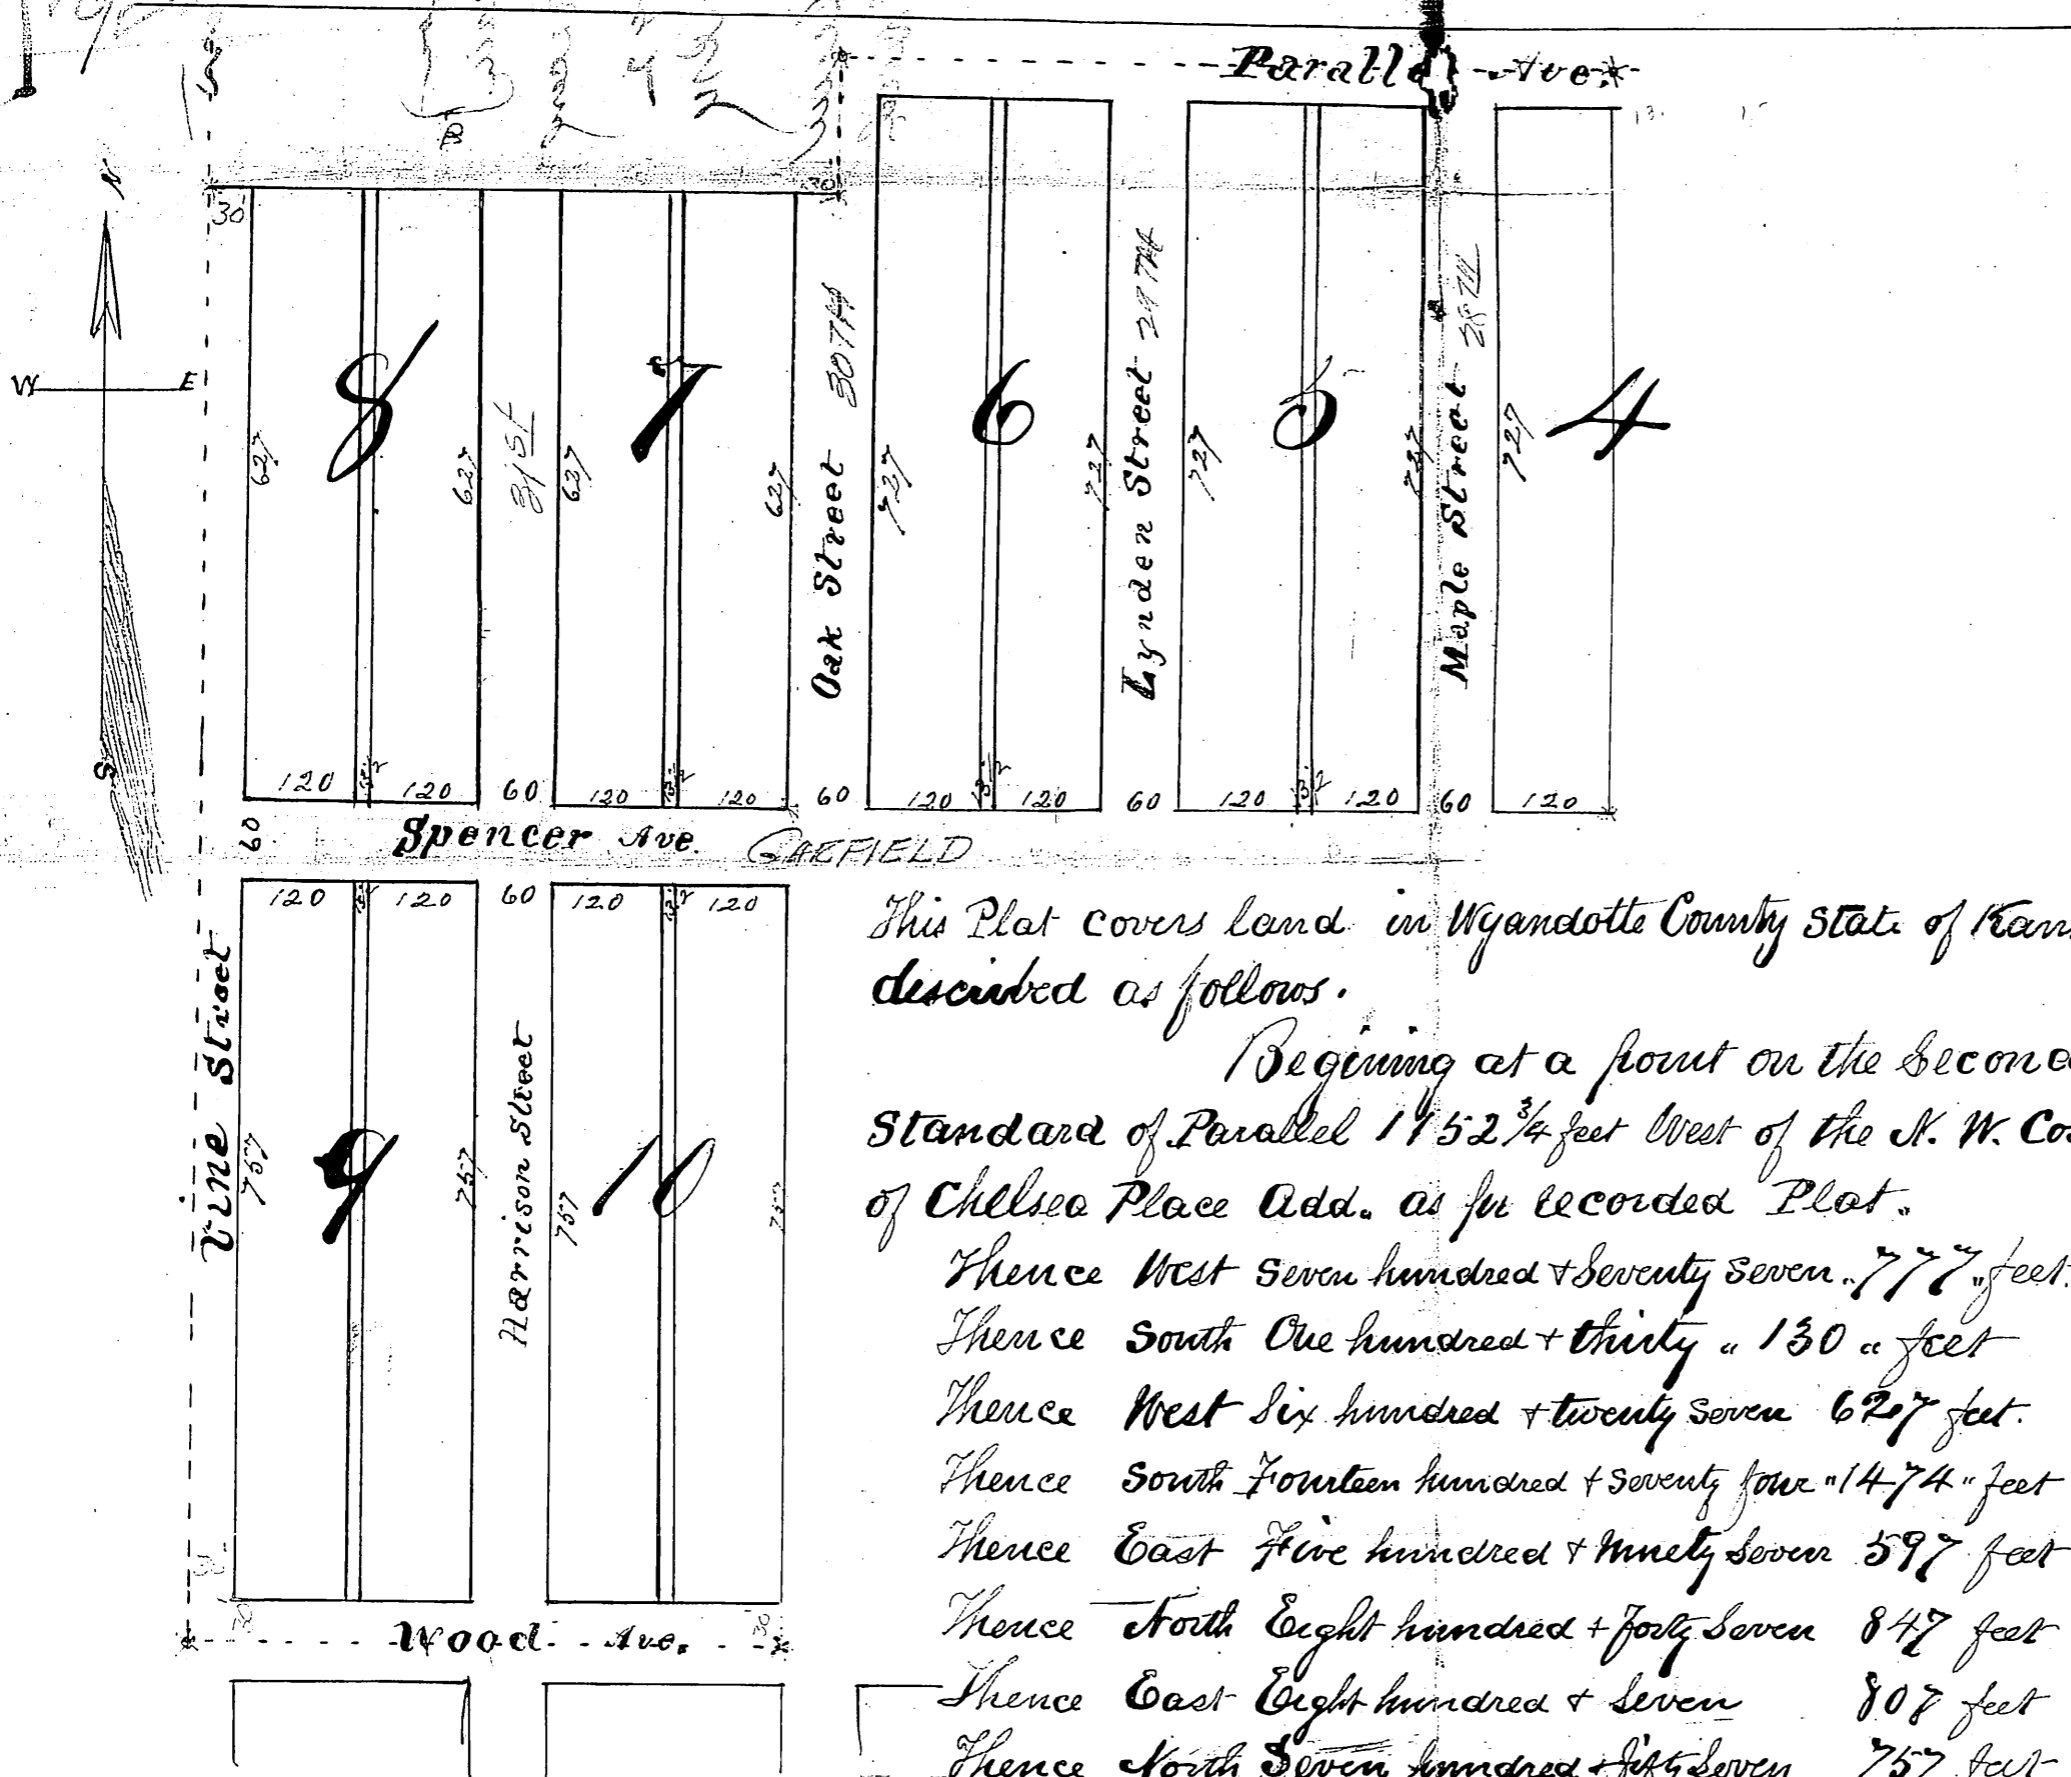 Parallel Ave.
N
W E
S
30
30
8
7
6
5
4
627
627
31st
627
627
Oak Street 30TH
727
727
Lynden Street 29TH
727
727
Maple Street 28TH
727
120 13½ 120 60 120 13½ 120 60 120 13½ 120 60 120 13½ 120 60 120
60
Spencer Ave. GARFIELD
120 13½ 120 60 120 13½ 120
Vine Street
757
9
757
Harrison Street
757
10
757
30
30 30
Wood Ave.
This Plat covers land in Wyandotte County State of Kan
described as follows.
Begining at a point on the Second
Standard of Parallel 1152¾ feet West of the N. W. Co
of Chelsea Place Add. as per recorded Plat.
Thence West Seven hundred + Seventy Seven "777" feet.
Thence South One hundred + thirty "130" feet
Thence West Six hundred + twenty Seven 627 feet.
Thence South Fourteen hundred + Seventy four "1474" feet
Thence East Five hundred + Ninety Seven 597 feet
Thence North Eight hundred + Forty Seven 847 feet
Thence East Eight hundred + Seven 807 feet
Thence North Seven hundred + fifty Seven 757 feet